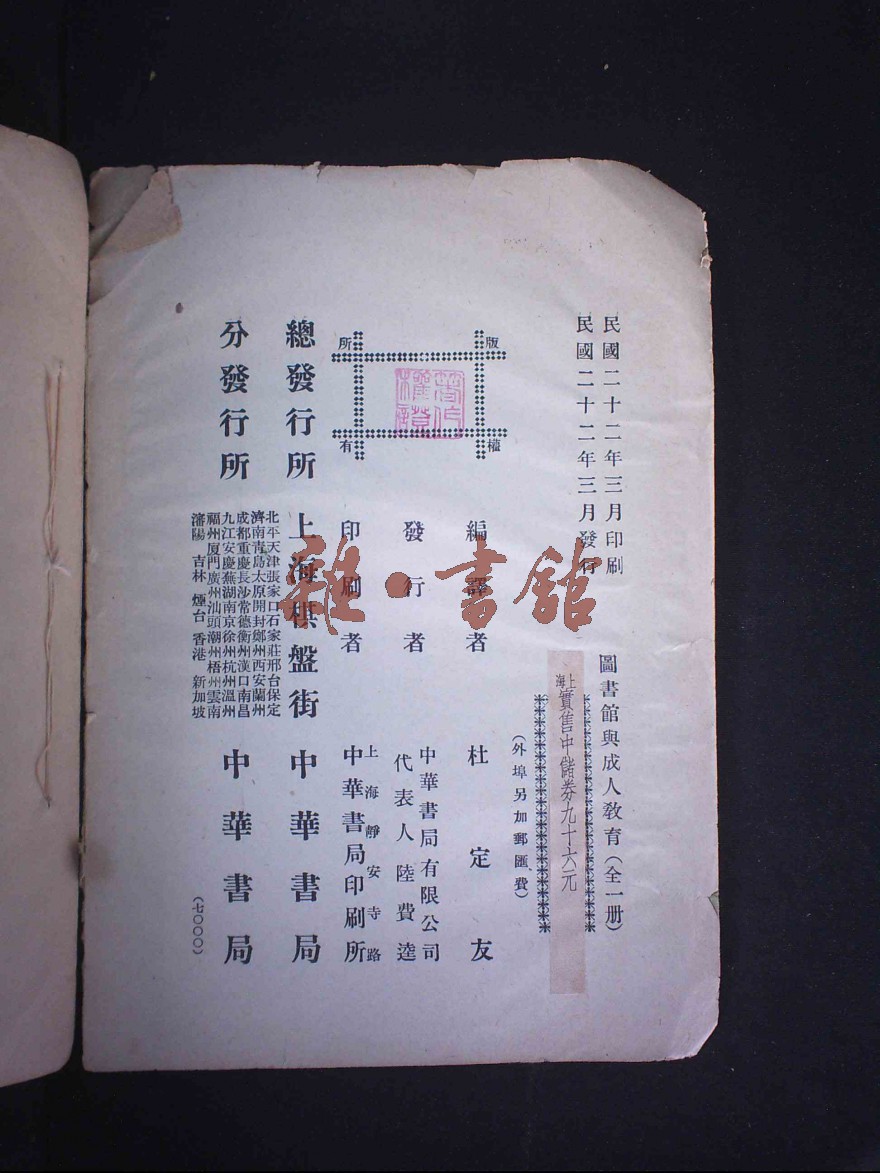 民國二十二年三月印刷
民國二十二年三月發行
圖書館與成人教育（全一册）
上海實售中儲券九十六元
（外埠另加郵匯費）
版權所有
編譯者 杜定友
發行者 中華書局有限公司
代表人 陸費逵
印刷者 上海靜安寺路
中華書局印刷所
總發行所 上海棋盤街 中華書局
分發行所
北平天津張家口石家莊邢台保定
濟南青島太原開封鄭州西安蘭州
成都重慶長沙常德衡州漢口南昌
九江安慶蕪湖南京徐州杭州溫州
福州厦門廣州汕頭潮州梧州雲南
瀋陽 吉林 煙台 香港 新加坡
中華書局
（七〇〇〇）
雜·書館